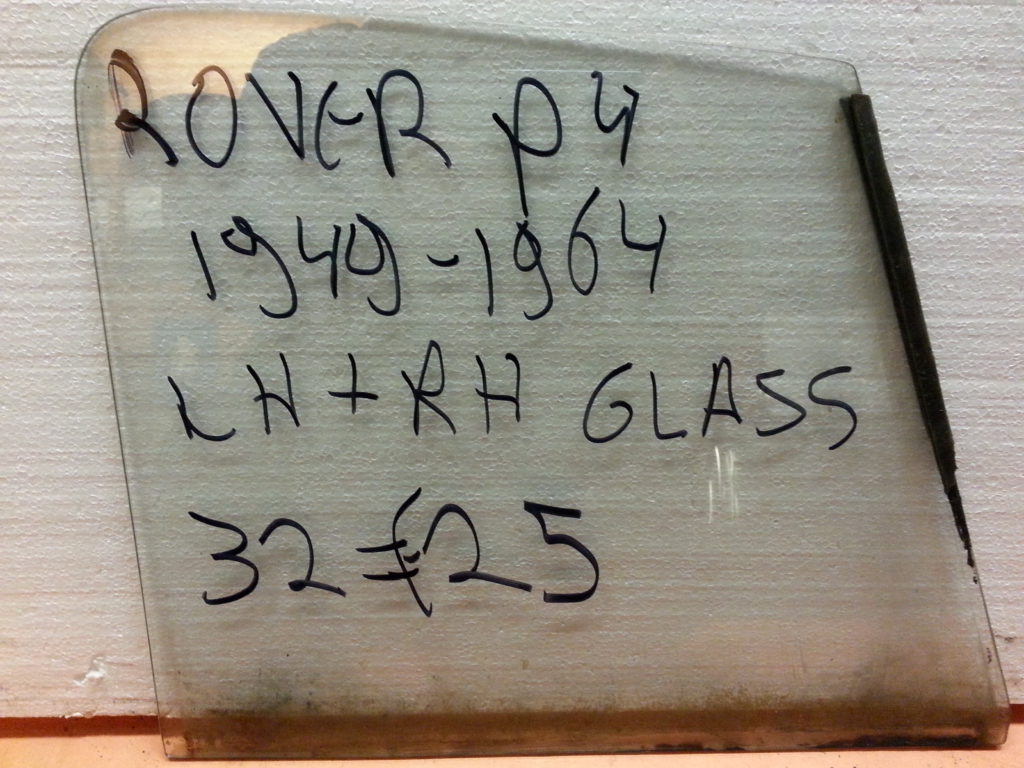 ROVER P4
1949-1964
LH + RH GLASS
32 €25